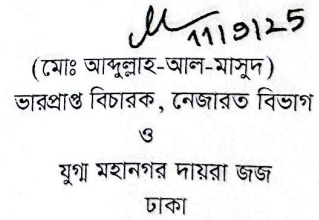 11/9/25
(মোঃ আব্দুল্লাহ-আল-মাসুদ)
ভারপ্রাপ্ত বিচারক, নেজারত বিভাগ
ও
যুগ্ম মহানগর দায়রা জজ
ঢাকা